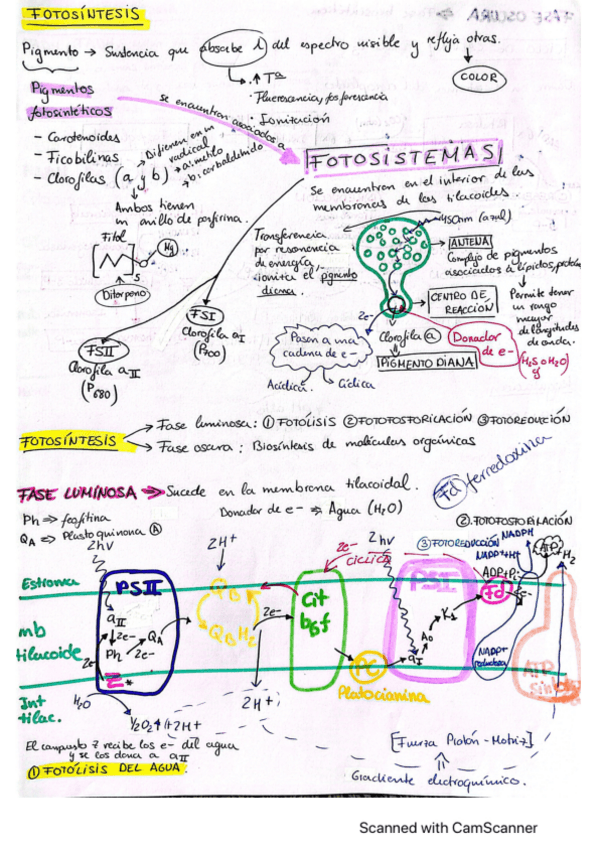 FOTOSÍNTESIS
Pigmento → Sustancia que absorbe λ del espectro visible y refleja otras.
↑ Tª
· Fluorescencia, fosforescencia
· Ionización
COLOR
Pigmentos
fotosintéticos
se encuentran asociados a
- Carotenoides
- Ficobilinas
- Clorofilas (a y b)
→ Difieren en un
radical
→ a: metilo
→ b: carbaldehído
Ambos tienen
un anillo de porfirina.
Fitol
Mg
Diterpeno
FOTOSISTEMAS
Se encuentran en el interior de las
membranas de los tilacoides
450nm (azul)
Transferencia
por resonancia
de energía,
ioniza el pigmento
diana.
ANTENA
Complejo de pigmentos
asociados a lípidos, proteínas
Permite tener
un rango
mayor
de longitudes
de onda.
CENTRO DE
REACCIÓN
2e-
Clorofila a
PIGMENTO DIANA
Donador
de e-
(H₂S o H₂O)
Pasan a una
cadena de e-
Acíclica.
Cíclica
FSI
Clorofila a I
(P700)
FSII
Clorofila a II
(P680)
FOTOSÍNTESIS
→ Fase luminosa: ① FOTÓLISIS ② FOTOFOSFORILACIÓN ③ FOTOREDUCCIÓN
→ Fase oscura: Biosíntesis de moléculas orgánicas
FASE LUMINOSA → Sucede en la membrana tilacoidal.
Donador de e- ⇒ Agua (H₂O)
Fd ferredoxina
Ph ⇒ feofitina
QA ⇒ Plastoquinona A
2hν
2H⁺
2e-
CICLICA
2hν
③ FOTOREDUCCIÓN
NADPH
NADP+H⁺
② FOTOFOSFORILACIÓN
ATP
ADP+Pi
Estroma
PSII
QB
QBH₂
2e-
Cit
b6f
PSI
Fd
mb
tilacoide
aII
2e-
Ph
2e-
QA
2e-
Z*
A0
K1
aI
NADP⁺
reductasa
ATP
PC
Platocianina
Int
tilac.
H₂O
1/2 O₂ + 2H⁺
2H⁺
El compuesto Z recibe los e- del agua
y se los dona a aII
① FOTÓLISIS DEL AGUA.
[Fuerza Protón-Motriz]
Gradiente electroquímico.
Scanned with CamScanner